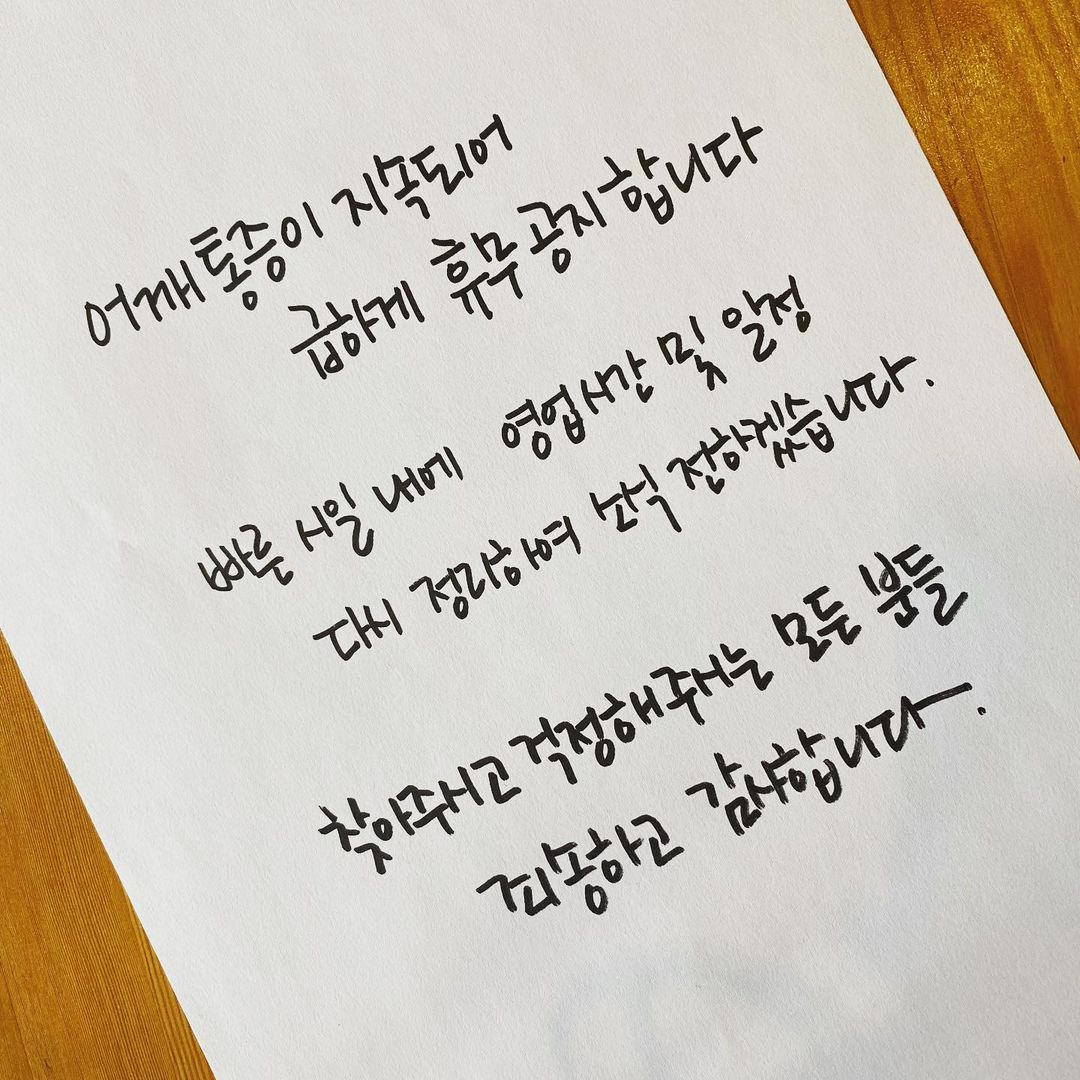 어깨통증이 지속되어
급하게 휴무 공지합니다
빠른 시일 내에 영업시간 및 일정
다시 정리하여 소식 전하겠습니다.
찾아주시고 걱정해주시는 모든 분들
죄송하고 감사합니다.